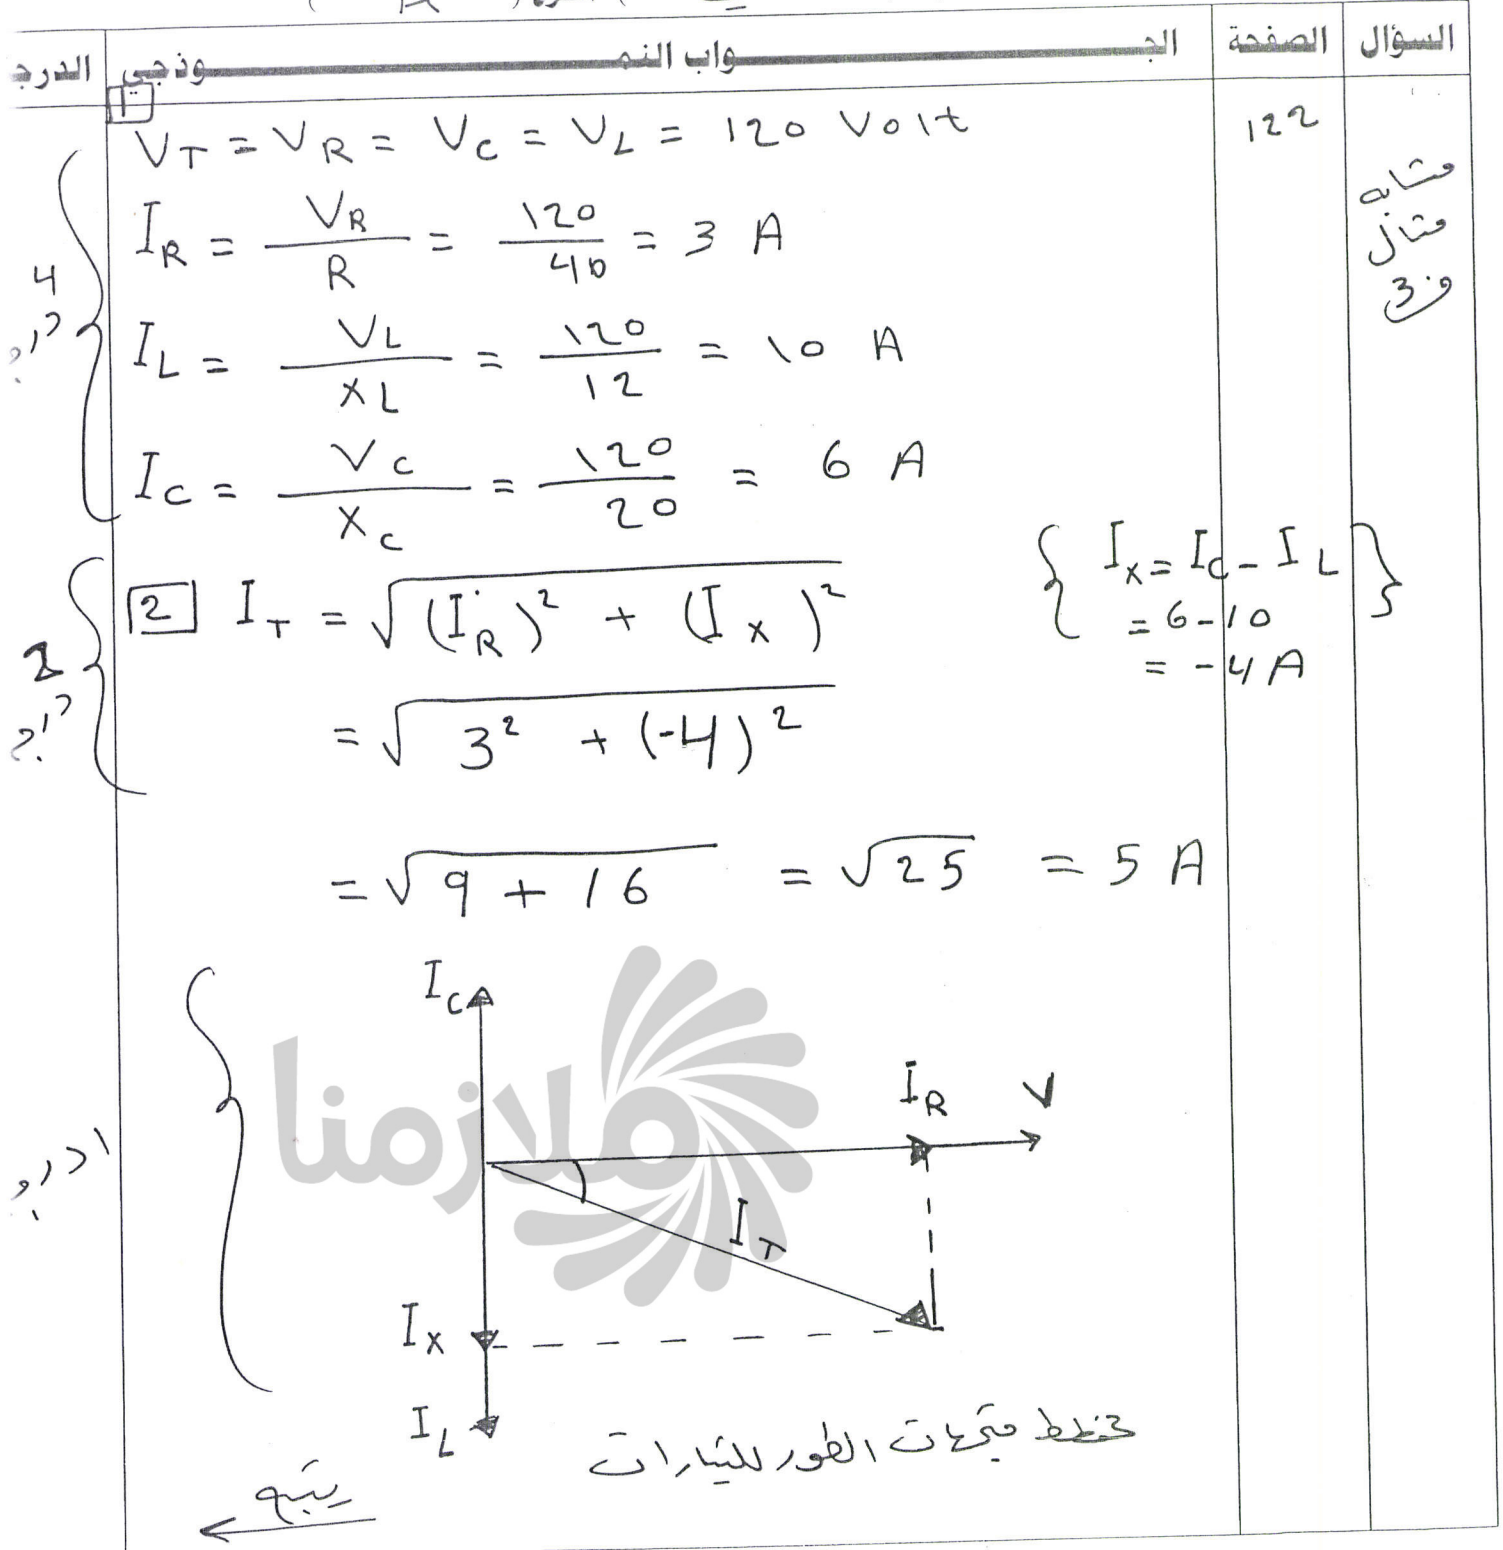 السؤال الصفحة الجـــواب النمـــوذجي الدرجـ
122
مشابه
مثال
و3
1
V_T = V_R = V_C = V_L = 120 Volt
I_R = V_R / R = 120 / 40 = 3 A
4
I_L = V_L / X_L = 120 / 12 = 10 A
I_C = V_C / X_C = 120 / 20 = 6 A
2 I_T = √((I_R)² + (I_X)²)
{ I_X = I_C - I_L }
= 6 - 10
= -4 A
= √(3² + (-4)²)
= √(9 + 16) = √25 = 5 A
I_C
I_R V
I_T
I_X
I_L
مخطط متجهات الطور للتيارات
يتبع
ملازمنا